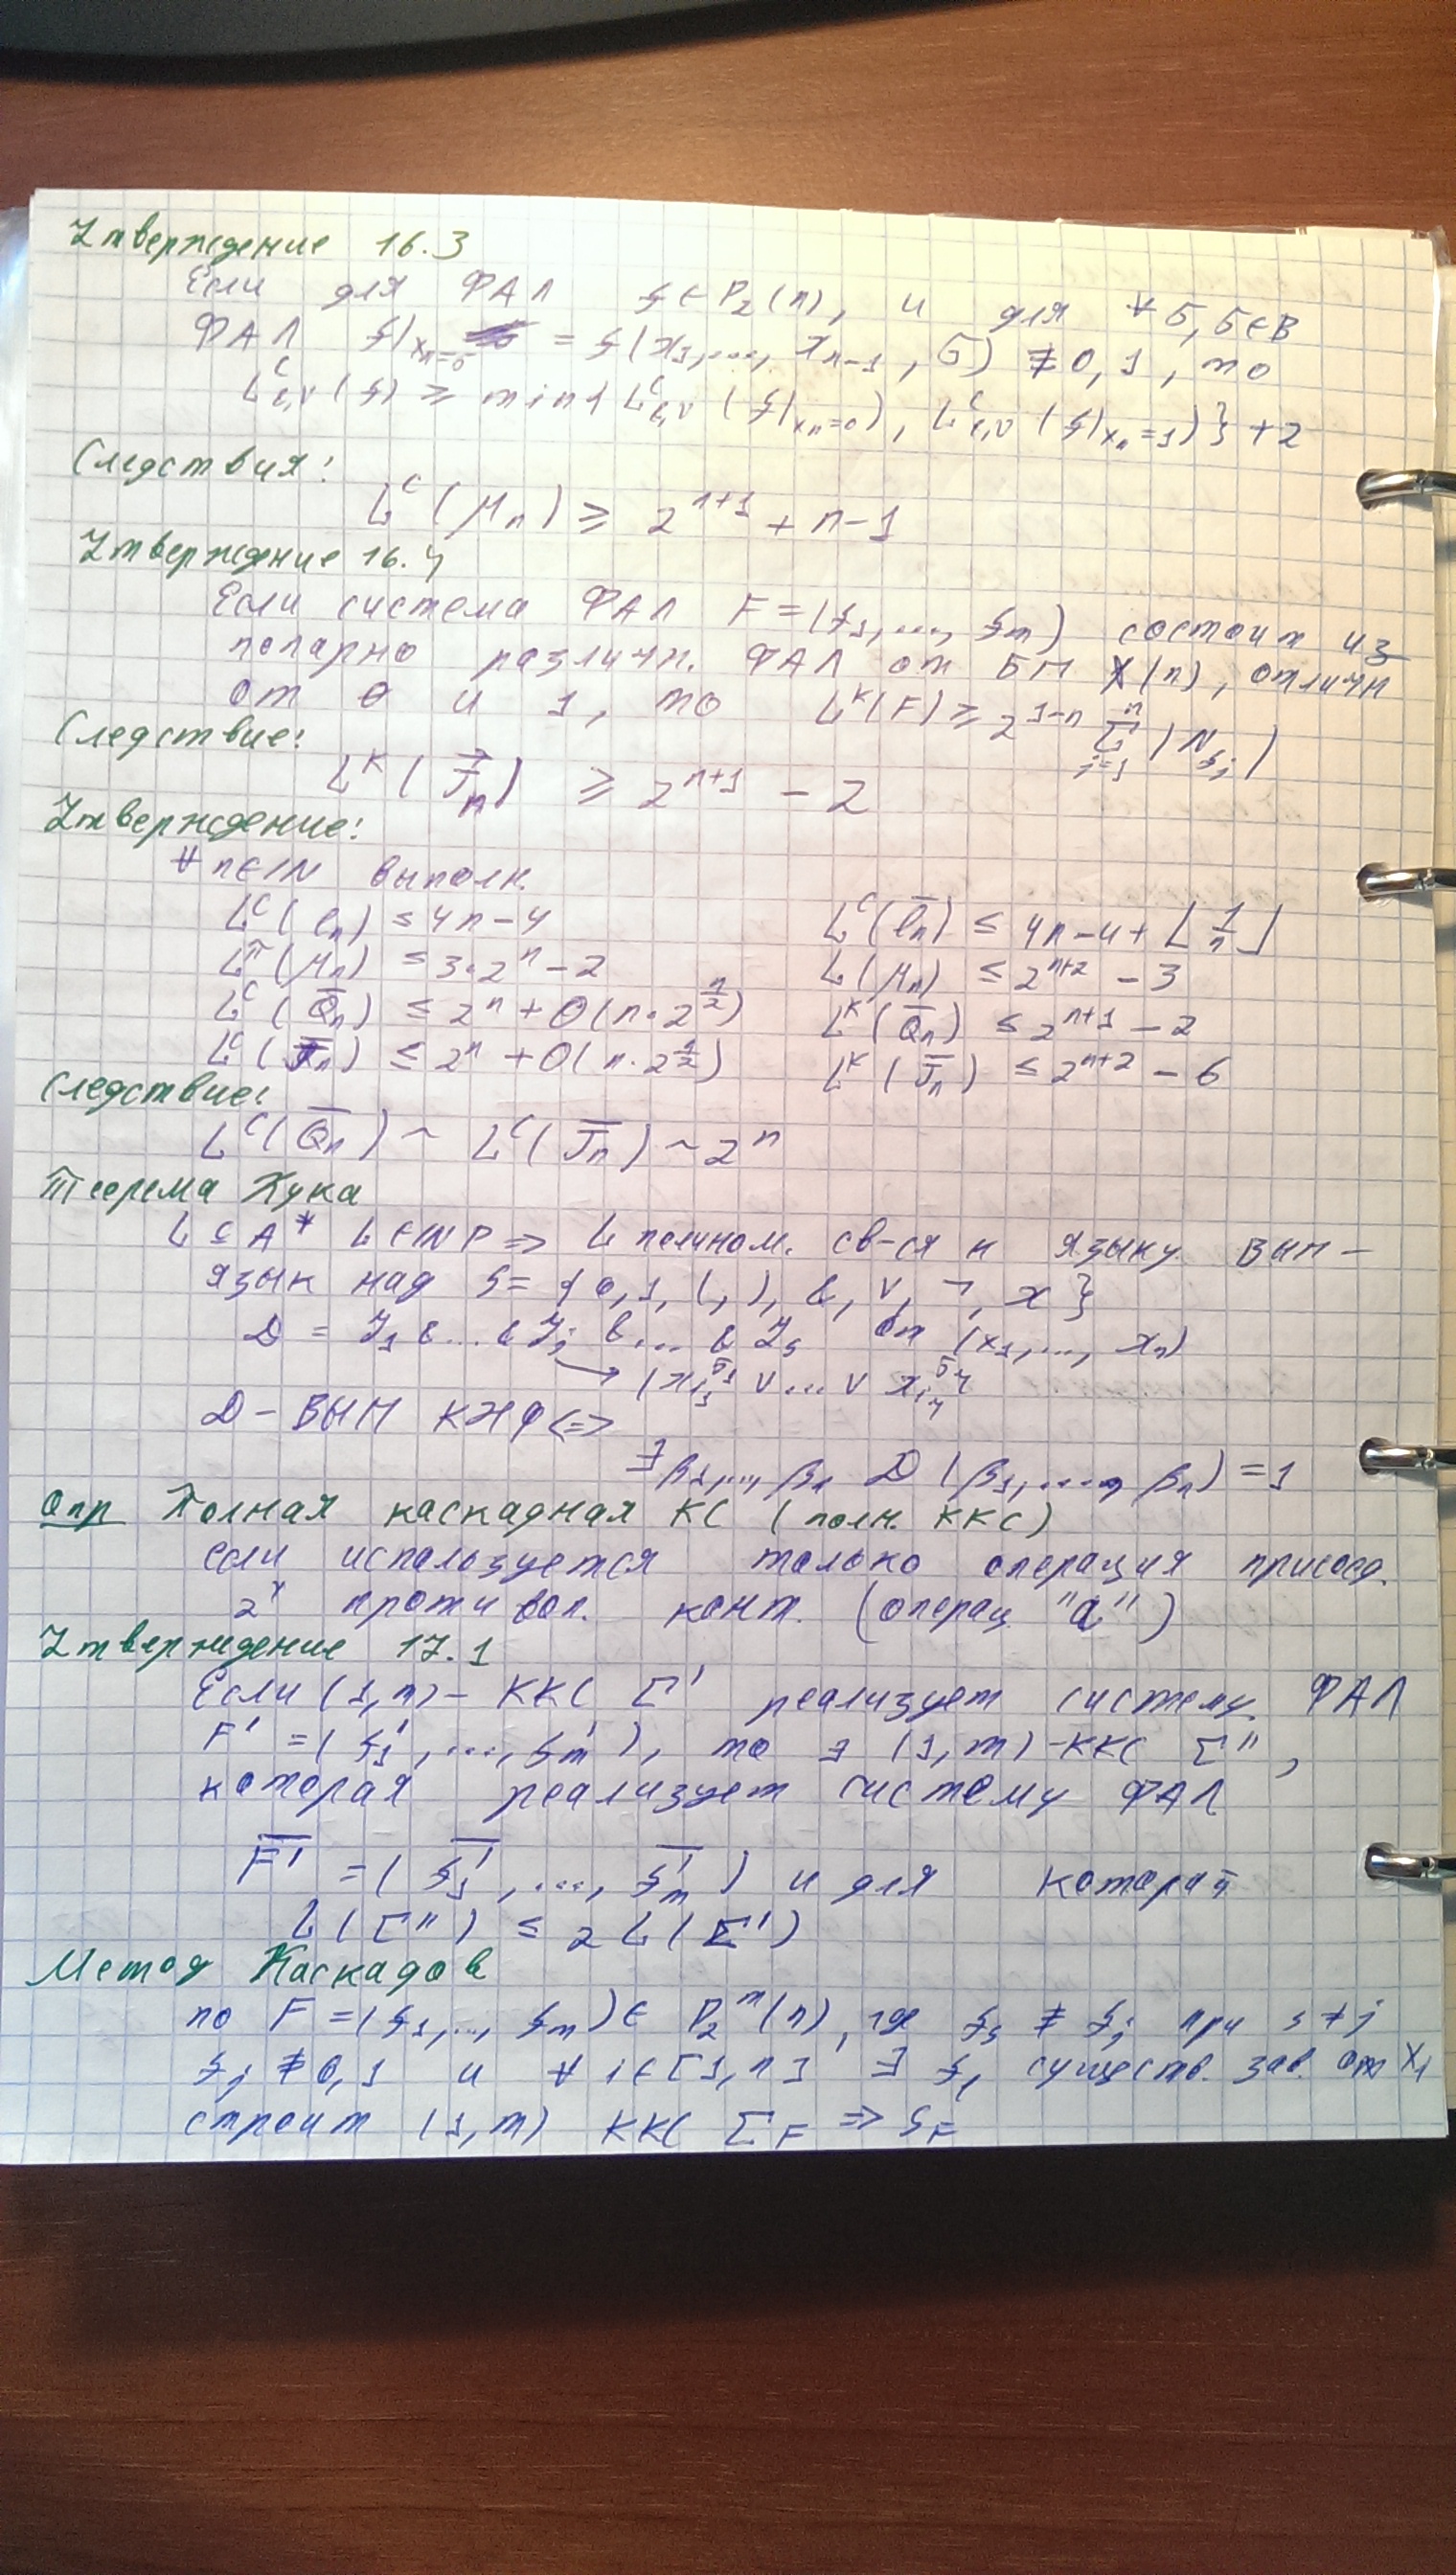 Утверждение 16.3
Если для ФАЛ f ∈ P₂(n), и для ∀ σ, σ∈B
ФАЛ f|xₙ=σ = f(x₁,..., xₙ₋₁, σ) ≢ 0, 1, то
L^C_{&,v}(f) ≥ min{L^C_{&,v}(f|xₙ=0), L^C_{&,v}(f|xₙ=1)} + 2
Следствия:
L^C(μₙ) ≥ 2^{n+1} + n-1
Утверждение 16.4
Если система ФАЛ F = (f₁,..., fₘ) состоит из
попарно различн. ФАЛ от БП X(n), отличн
от 0 и 1, то L^K(F) ≥ 2^{1-n} Σ_{j=1}^{n} |N_{fj}|
Следствие:
L^K(J⃗ₙ) ≥ 2^{n+1} - 2
Утверждение:
∀ n∈ℕ выполн.
L^C(ℓₙ) ≤ 4n-4 L^C(ℓ̅ₙ) ≤ 4n-4+⌊1/n⌋
L^π(μₙ) ≤ 3·2ⁿ-2 L(μₙ) ≤ 2^{n+2} - 3
L^C(Q̅ₙ) ≤ 2ⁿ + O(n·2^{n/2}) L^K(Q̅ₙ) ≤ 2^{n+1} - 2
L^C(J̅ₙ) ≤ 2ⁿ + O(n·2^{n/2}) L^K(J̅ₙ) ≤ 2^{n+2} - 6
Следствие:
L^C(Q̅ₙ) ~ L^C(J̅ₙ) ~ 2ⁿ
Теорема Кука
L ⊆ A* L∈NP ⇒ L полином. св-ся к языку ВЫП -
язык над S = {0, 1, (, ), &, ∨, ¬, x}
D = J₁ &...& Jⱼ &...& Jₛ от (x₁,..., xₙ)
→ (x_{i₁}^{σ₁} ∨ ... ∨ x_{i₄}^{σ₄}
D - ВЫП КНФ <=>
∃ β₁,..., βₙ D(β₁,..., βₙ) = 1
Опр Полная каскадная КС (полн. ККС)
если используется только операция присоед.
2ˣ противоп. конт. (операц. "a")
Утверждение 17.1
Если (1,m) - ККС Σ' реализует систему ФАЛ
F' = (f₁',..., fₘ'), то ∃ (1,m) - ККС Σ'',
которая реализует систему ФАЛ
F̅' = (f̅₁',..., f̅ₘ') и для которой
L(Σ'') ≤ 2L(Σ')
Метод Каскадов
по F = (f₁,..., fₘ) ∈ P₂ᵐ(n), где fₛ ≢ fⱼ при s ≠ j
fⱼ ≢ 0,1 и ∀ i∈[1,n] ∃ fⱼ существ. зав. от xᵢ
строит (1,m) ККС Σ_F ⇒ S_F